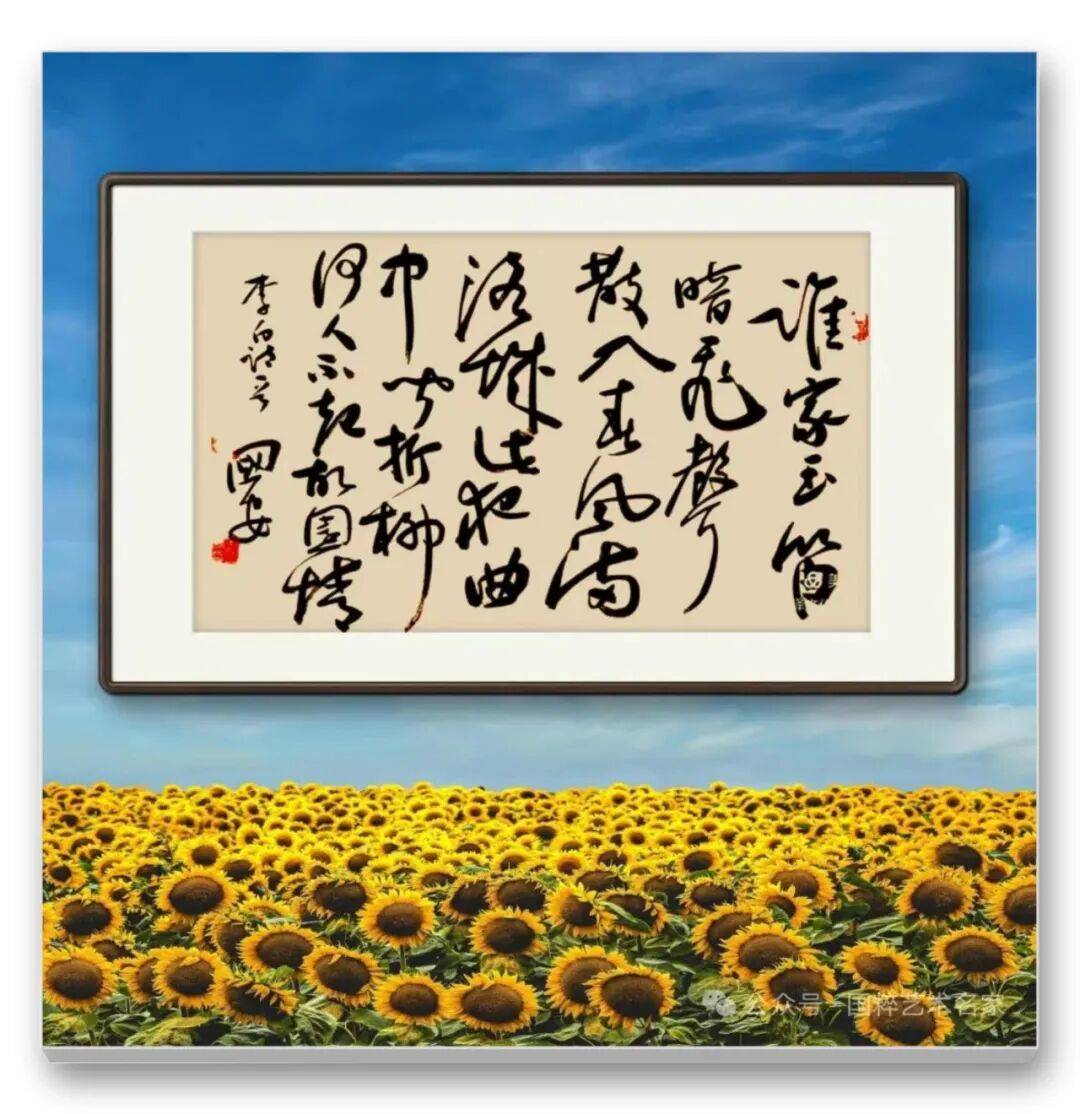 谁家玉笛
暗飛聲
散入春风满
洛城此夜曲
中闻折柳
何人不起故园情
李白诗
國安
公众号 · 国粹艺术名家